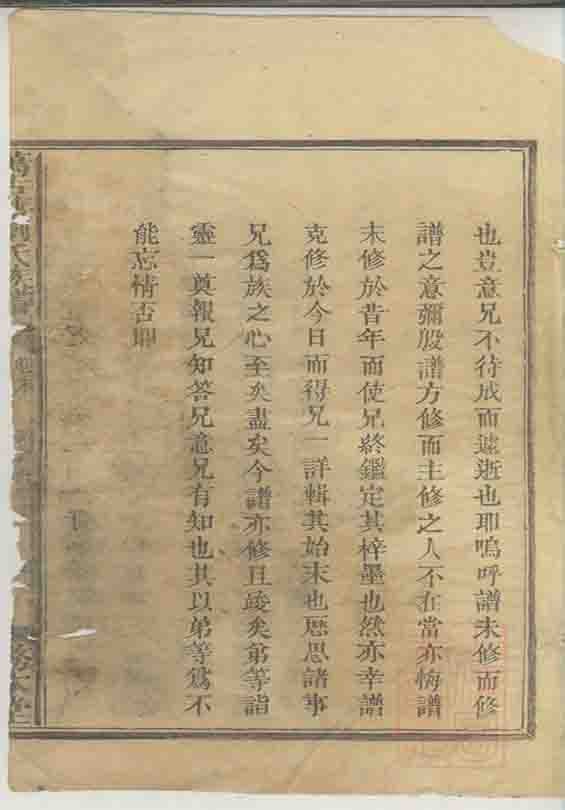 也豈意兄不待成而遽逝也耶嗚呼譜未修而修
譜之意彌殷譜方修而主修之人不在當亦悔譜
未修於昔年而使兄終鑑定其梓墨也然亦幸譜
克修於今日而得兄一詳輯其始末也歷思諸事
兄爲族之心至矣盡矣今譜亦修且竣矣弟等詣
靈一奠報兄知答兄意兄有知也其以弟等爲不
能忘情否耶
氏族譜